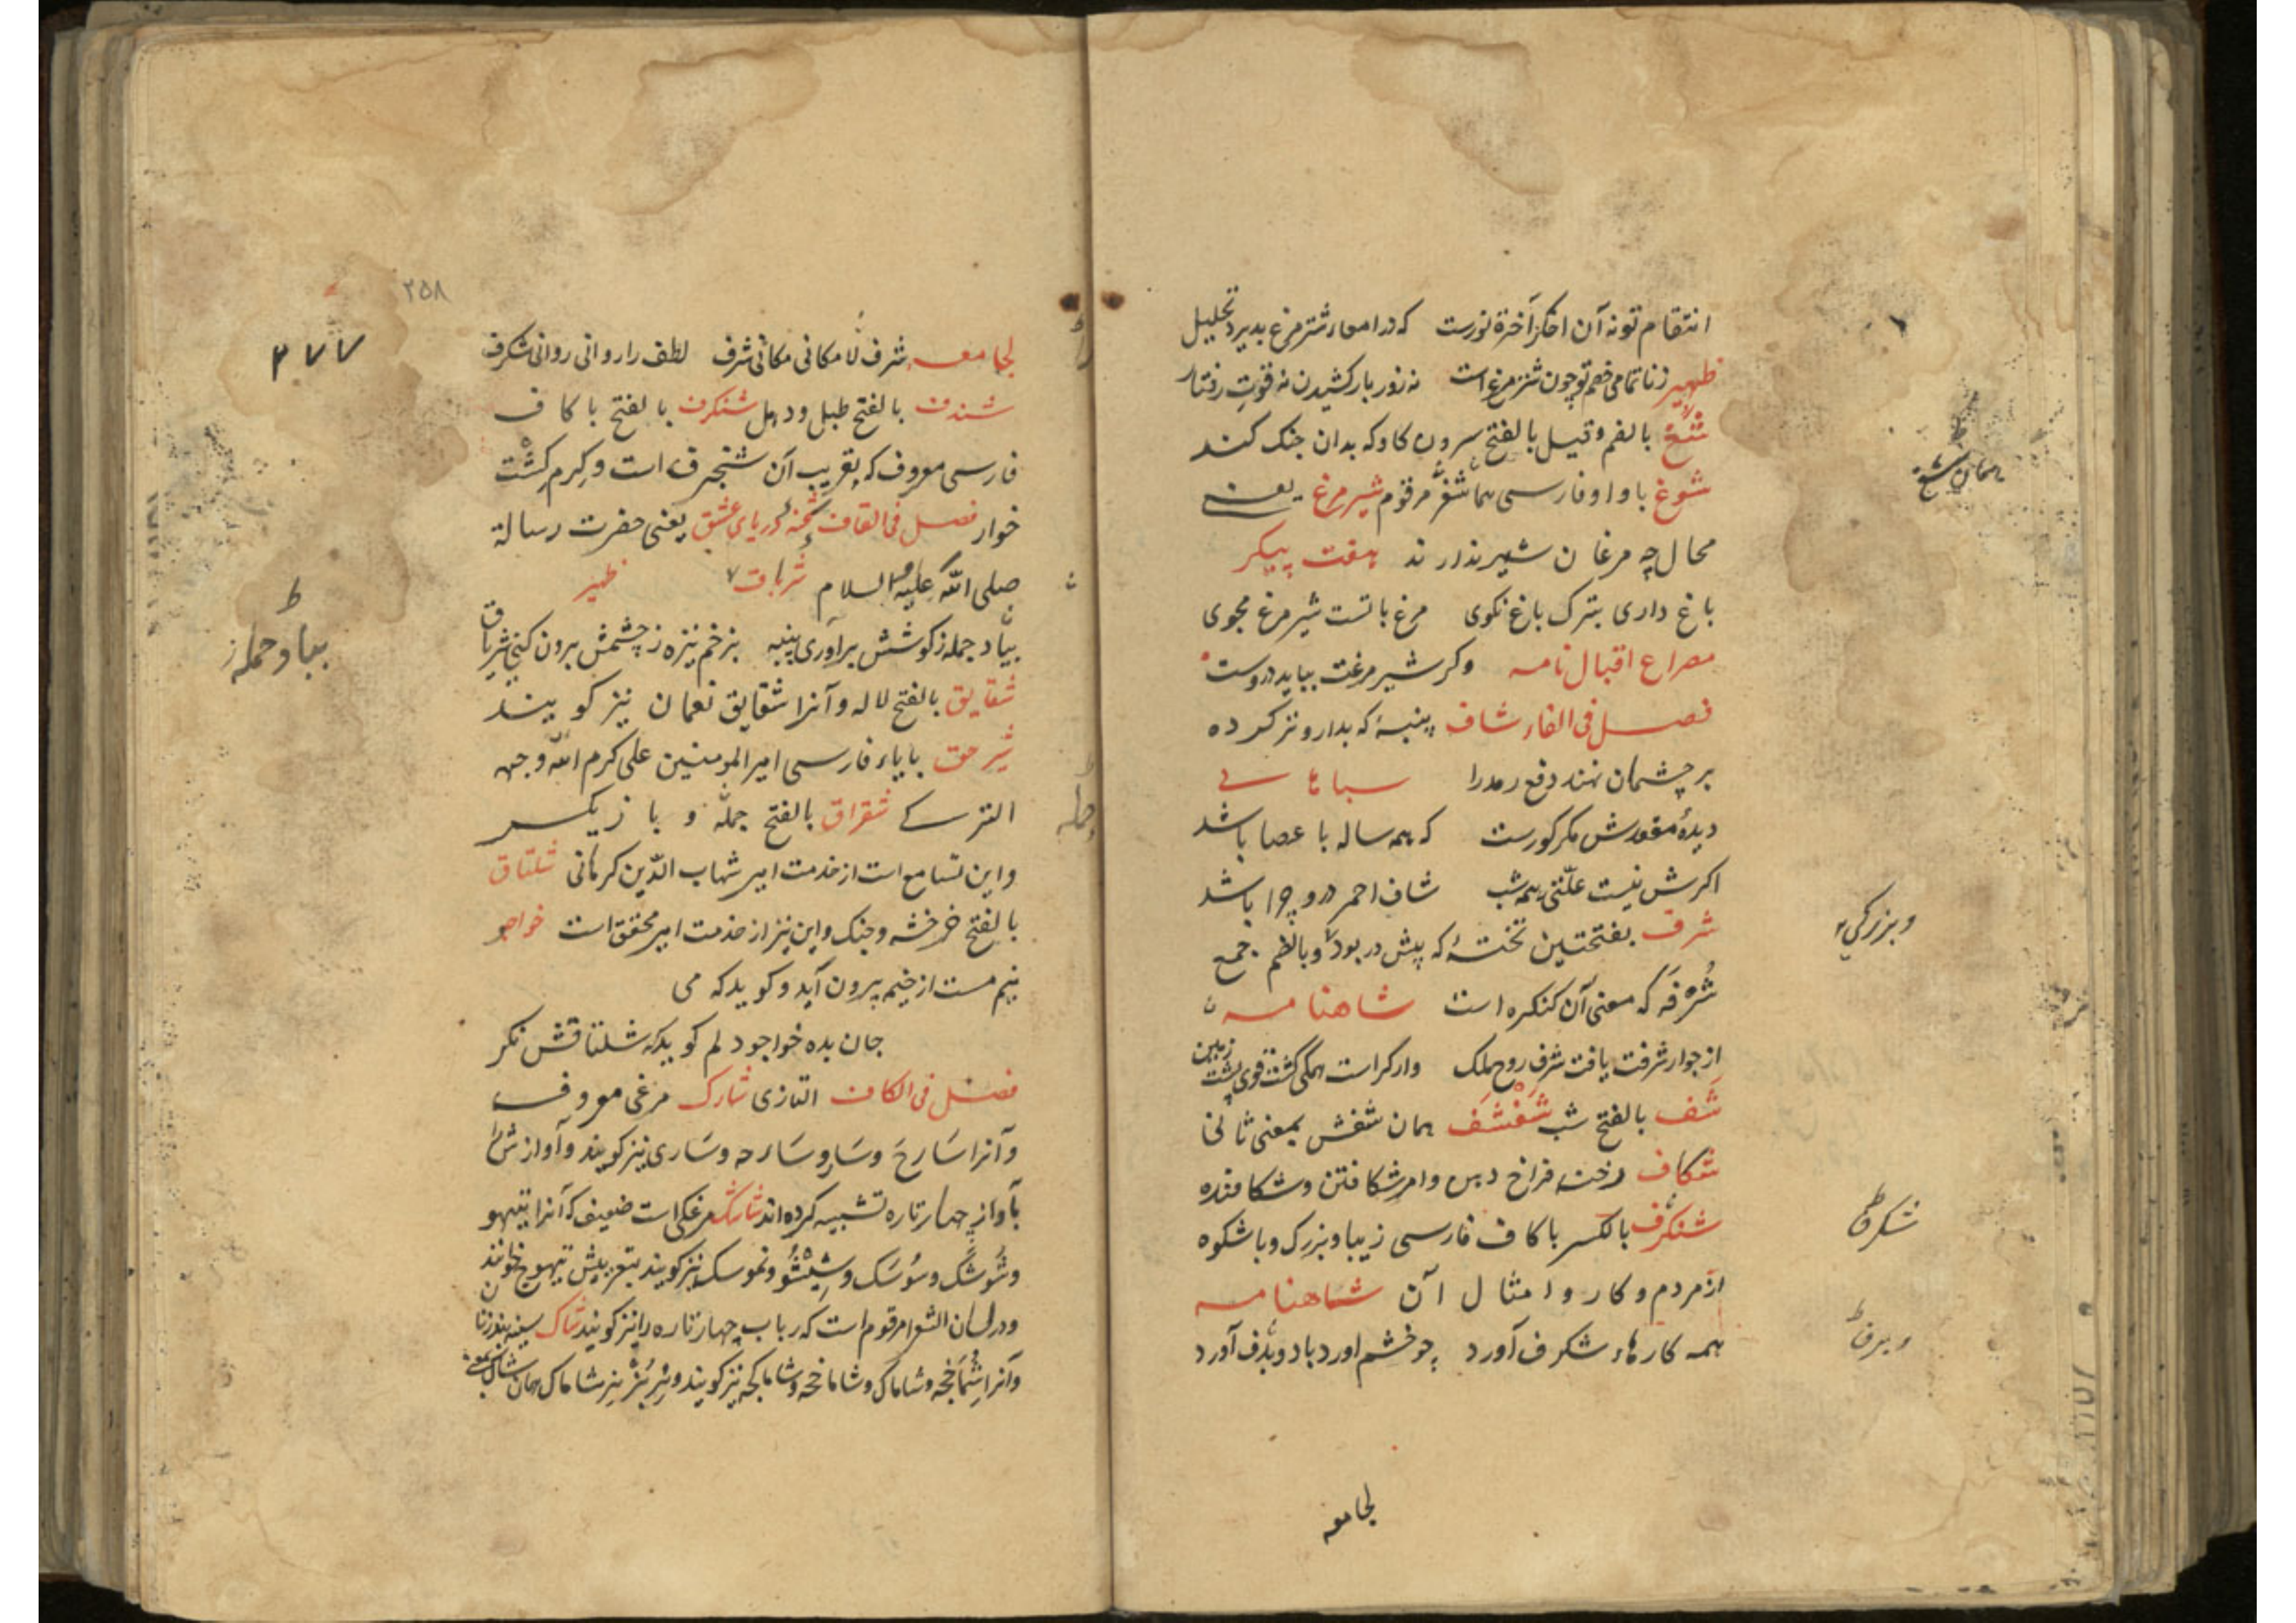 انتقام تو نه آن اخگر آخرة نورست که در امعاء شترمرغ پدیرد تحلیل
ظهیر زناتمامی خصم تو چون شترمرغ است نه زور بار کشیدن نه قوت رفتار
شغ بالضم وقیل بالفتح سرون کاو که بدان جنک کنند
شوغ با واو فارسی هماشغر مرقوم شیر مرغ یعنی
محال چه مرغان شیر ندارند هفت پیکر
باغ داری بترک باغ نکوی مرغ باتست شیر مرغ مجوی
مصراع اقبال نامه وکر شیر مرغت بباید دروست
فصل فی الفاء شاف پنبۀ که بدارو تر کرده
بر چشمان نهند دفع رمد را
دیدۀ مقعدش مکر کورست که همه ساله با عصا باشد
اکرش نیست علتی همه شب شاف احمر درو چرا باشد
شرف بفتحتین تختۀ که پیش در بود و بالضم جمع
شرفه که معنی آن کنکره است شاهنامه
از جوار شرفت یافت شرف روح ملک
شف بالفتح شب شفشف همان شفش بمعنی ثانی
شکاف رخنه فراخ دهن وامر شکافتن و شکافنده
شنکرف بالکسر با کاف فارسی زیبا و بزرک و باشکوه
از مردم و کار و امثال آن شاهنامه
همه کارهاء شکرف آورد چو خشم اورد باد و برف آورد
لجامعه
همان شغ
و بزرکی
شکرف
و برف
۲۵۸
۳۷۷
لجامعه شرف لامکانی مکانی شرف لطف را روانی روانی شکرف
شندف بالفتح طبل و دهل شنکرف بالفتح با کاف
فارسی معروف که بتعریب آن شنجرف است و کرم کشت
خوار فصل فی القاف شحنه دریای عشق یعنی حضرت رسالة
صلی الله علیه السلام شرباق ظهیر
بیاد حمله زکوشش برآوری پنبه بزخم نیزه زچشمش برون کنی شریاق
شقایق بالفتح لاله و آنرا شقایق نعمان نیز کویند
شیر حق بایاء فارسی امیر المومنین علی کرم الله وجهه
الترکی شقراق بالفتح جمله و بازیکر
و این تسامع است از خدمت امیر شهاب الدین کرمانی شلتاق
بالفتح خرخشه و جنک و این نیز از خدمت امیر محقق است خواجو
نیم مست از خیمه بیرون آید و کوید که می
جان بده خواجو دلم کوید که شلتاقش نکر
فصل فی الکاف التازی شارک مرغی معروف
و آنرا سارخ و سار و سارجه و ساری نیز کویند و آوازش را
بآواز چهارتاره تشبیه کرده اند شارشک مرغکی است ضعیف که آنرا تیهو
و شوشک و سوسک و شیشو و نموسک نیز کویند بتعریبش تیهوج خوانند
و در لسان الشعرا مرقوم است که رباب چهارتاره را نیز کویند شاک سینه بند زنان
و آنرا شماخچه و شاماک و شاماخچه و شاماکچه نیز کویند
بباد حمله ز